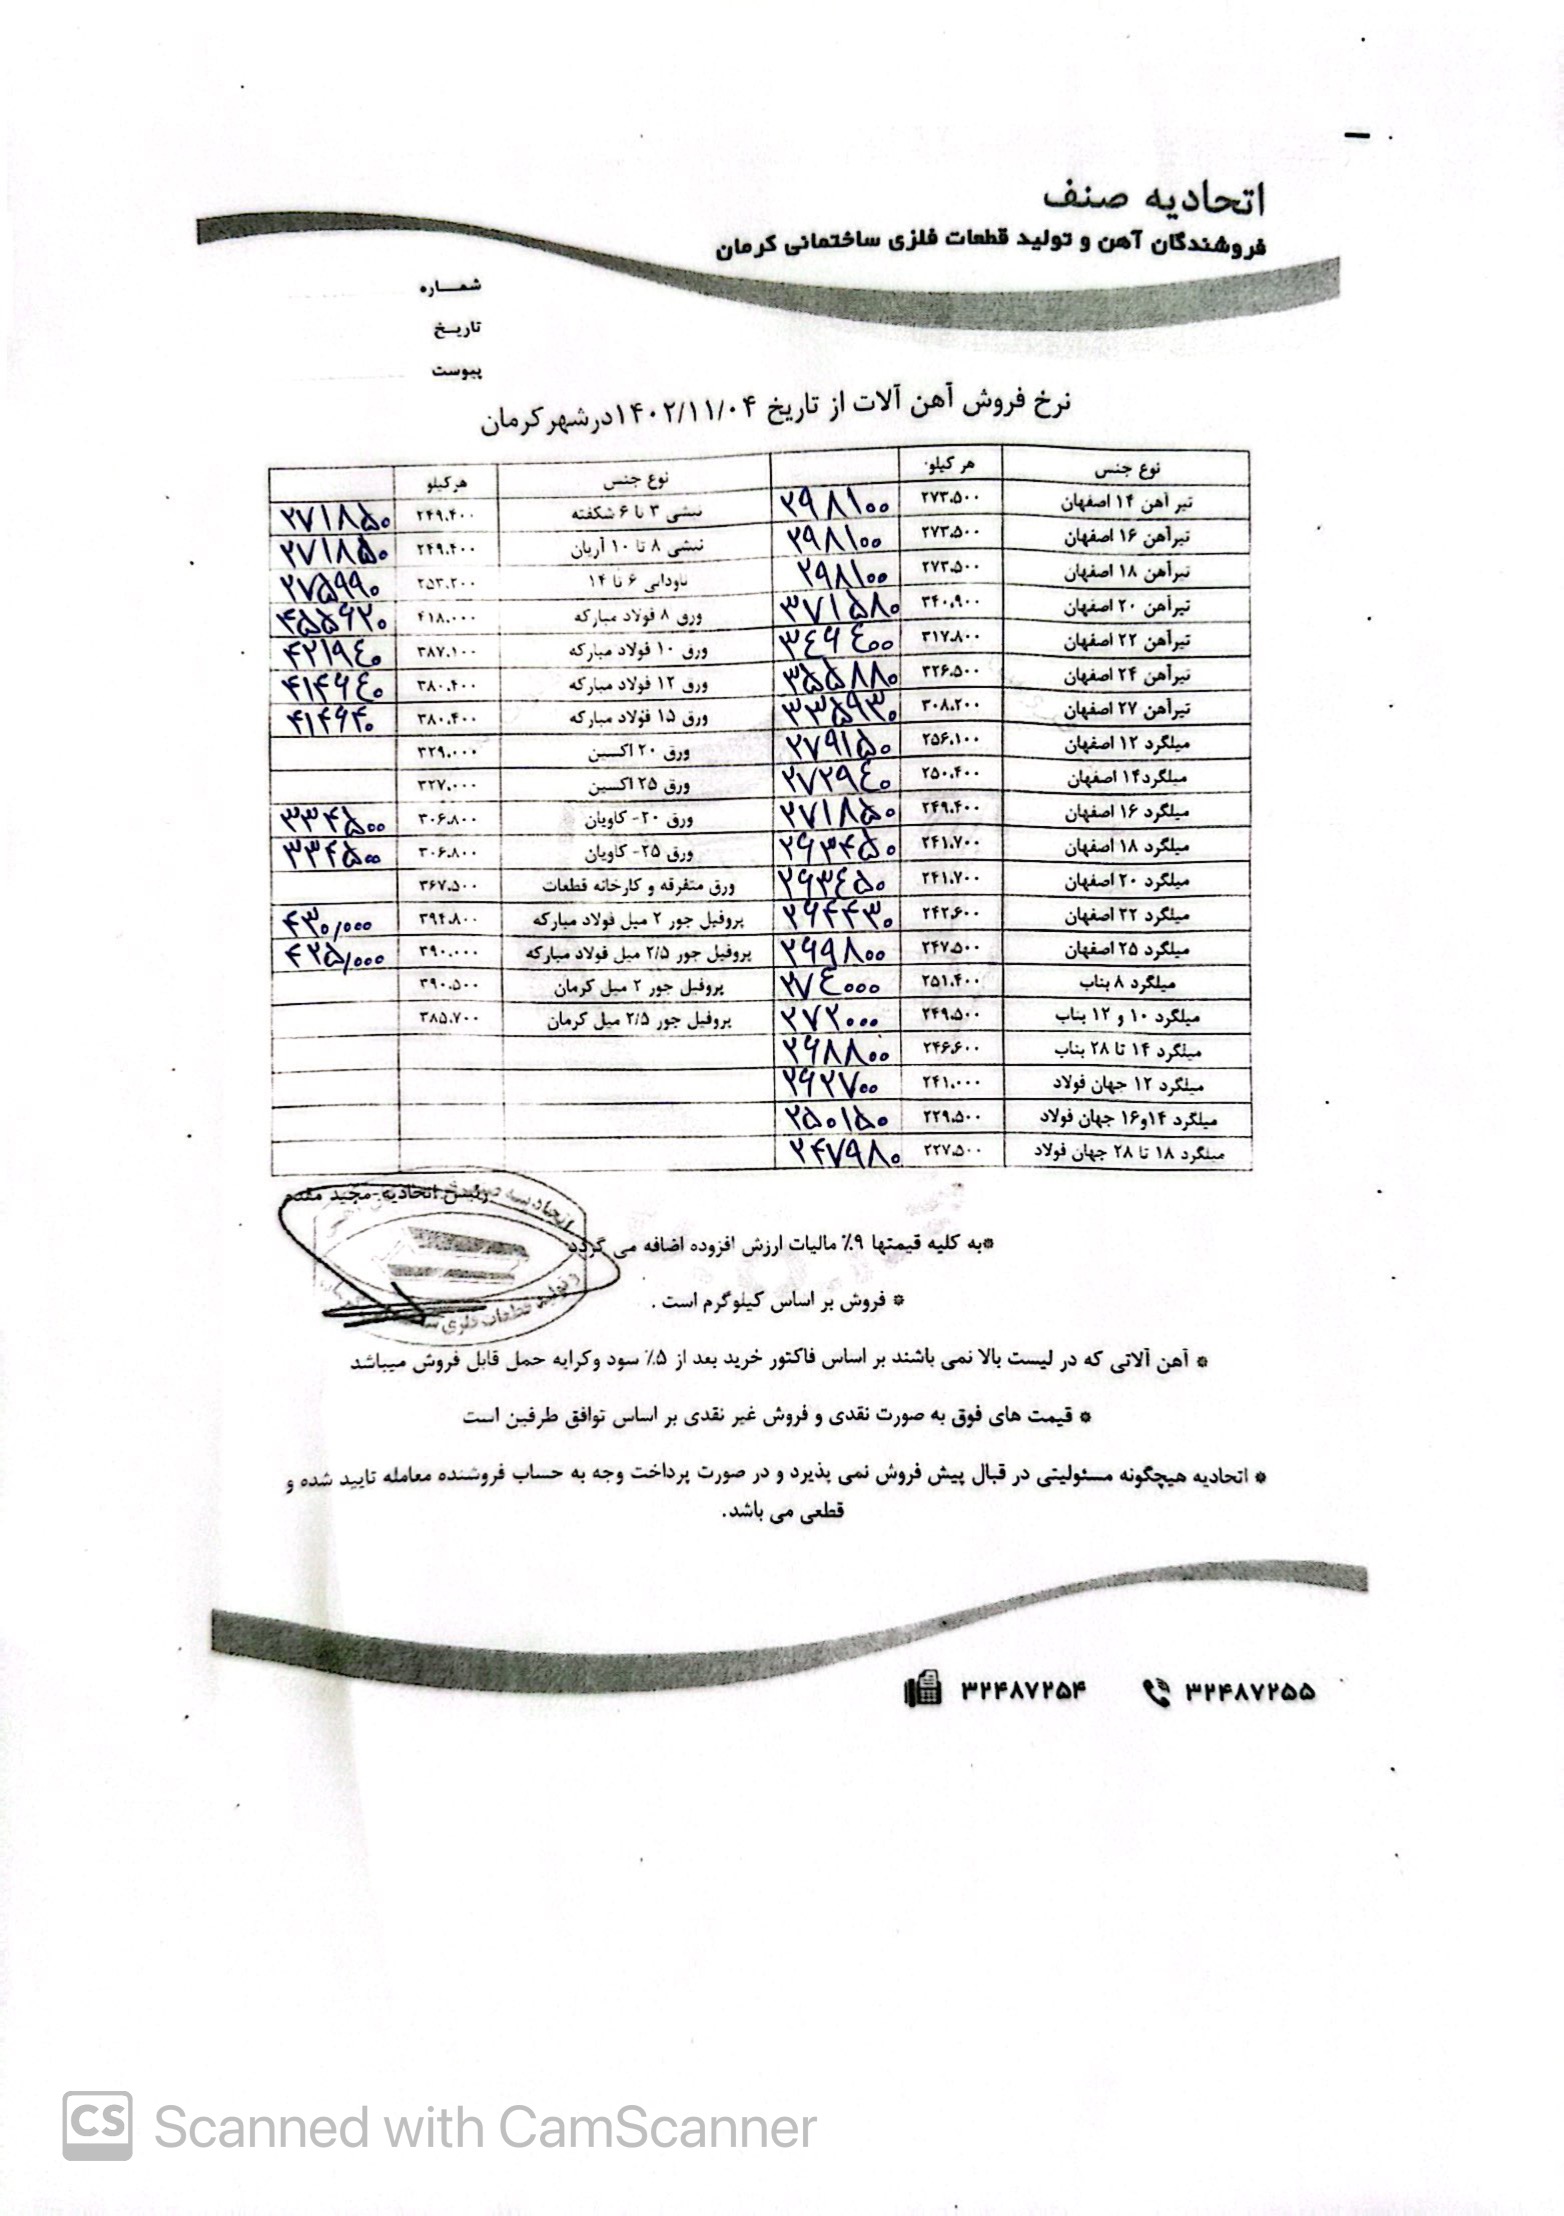 اتحادیه صنف
فروشندگان آهن و تولید قطعات فلزی ساختمانی کرمان
شمـــاره
تاریـخ
پیوست
نرخ فروش آهن آلات از تاریخ ۱۴۰۲/۱۱/۰۴درشهرکرمان
نوع جنس هر کیلو نوع جنس هرکیلو
تیر آهن ۱۴ اصفهان ۲۷۳.۵۰۰ ۲۹۸۱۰۰ نبشی ۳ تا ۶ شکفته ۲۴۹.۴۰۰ ۲۷۱۸۵۰
تیرآهن ۱۶ اصفهان ۲۷۳.۵۰۰ ۲۹۸۱۰۰ نبشی ۸ تا ۱۰ آریان ۲۴۹.۴۰۰ ۲۷۱۸۵۰
تیرآهن ۱۸ اصفهان ۲۷۳.۵۰۰ ۲۹۸۱۰۰ ناودانی ۶ تا ۱۴ ۲۵۳.۲۰۰ ۲۷۵۹۹۰
تیرآهن ۲۰ اصفهان ۳۴۰.۹۰۰ ۳۷۱۵۸۰ ورق ۸ فولاد مبارکه ۴۱۸.۰۰۰ ۴۵۵۶۲۰
تیرآهن ۲۲ اصفهان ۳۱۷.۸۰۰ ۳۴۶۴۰۰ ورق ۱۰ فولاد مبارکه ۳۸۷.۱۰۰ ۴۲۱۹۴۰
تیرآهن ۲۴ اصفهان ۳۲۶.۵۰۰ ۳۵۵۸۸۰ ورق ۱۲ فولاد مبارکه ۳۸۰.۴۰۰ ۴۱۴۶۴۰
تیرآهن ۲۷ اصفهان ۳۰۸.۲۰۰ ۳۳۵۹۳۰ ورق ۱۵ فولاد مبارکه ۳۸۰.۴۰۰ ۴۱۴۶۴۰
میلگرد ۱۲ اصفهان ۲۵۶.۱۰۰ ۲۷۹۱۵۰ ورق ۲۰ اکسین ۳۲۹.۰۰۰
میلگرد۱۴ اصفهان ۲۵۰.۴۰۰ ۲۷۲۹۴۰ ورق ۲۵ اکسین ۳۲۷.۰۰۰
میلگرد ۱۶ اصفهان ۲۴۹.۴۰۰ ۲۷۱۸۵۰ ورق ۲۰- کاویان ۳۰۶.۸۰۰ ۳۳۴۵۰۰
میلگرد ۱۸ اصفهان ۲۴۱.۷۰۰ ۲۶۳۴۵۰ ورق ۲۵- کاویان ۳۰۶.۸۰۰ ۳۳۴۵۰۰
میلگرد ۲۰ اصفهان ۲۴۱.۷۰۰ ۲۶۳۴۵۰ ورق متفرقه و کارخانه قطعات ۳۶۷.۵۰۰
میلگرد ۲۲ اصفهان ۲۴۲.۶۰۰ ۲۶۴۴۳۰ پروفیل جور ۲ میل فولاد مبارکه ۳۹۴.۸۰۰ ۴۳۰,۰۰۰
میلگرد ۲۵ اصفهان ۲۴۷.۵۰۰ ۲۶۹۸۰۰ پروفیل جور ۲/۵ میل فولاد مبارکه ۳۹۰.۰۰۰ ۴۲۵,۰۰۰
میلگرد ۸ بناب ۲۵۱.۴۰۰ ۲۷۴۰۰۰ پروفیل جور ۲ میل کرمان ۳۹۰.۵۰۰
میلگرد ۱۰ و ۱۲ بناب ۲۴۹.۵۰۰ ۲۷۲۰۰۰ پروفیل جور ۲/۵ میل کرمان ۳۸۵.۷۰۰
میلگرد ۱۴ تا ۲۸ بناب ۲۴۶.۶۰۰ ۲۶۸۸۰۰
میلگرد ۱۲ جهان فولاد ۲۴۱.۰۰۰ ۲۶۲۷۰۰
میلگرد ۱۴و۱۶ جهان فولاد ۲۲۹.۵۰۰ ۲۵۰۱۵۰
میلگرد ۱۸ تا ۲۸ جهان فولاد ۲۲۷.۵۰۰ ۲۴۷۹۸۰
رئیس اتحادیه-مجید مقدم
*به کلیه قیمتها ۹٪ مالیات ارزش افزوده اضافه می گردد
* فروش بر اساس کیلوگرم است .
* آهن آلاتی که در لیست بالا نمی باشند بر اساس فاکتور خرید بعد از ۵٪ سود وکرایه حمل قابل فروش میباشد
* قیمت های فوق به صورت نقدی و فروش غیر نقدی بر اساس توافق طرفین است
* اتحادیه هیچگونه مسئولیتی در قبال پیش فروش نمی پذیرد و در صورت پرداخت وجه به حساب فروشنده معامله تایید شده و
قطعی می باشد.
۳۲۴۸۷۲۵۵ ۳۲۴۸۷۲۵۴
CS Scanned with CamScanner